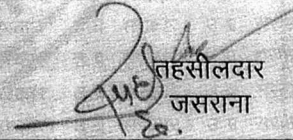 तहसीलदार
जसराना